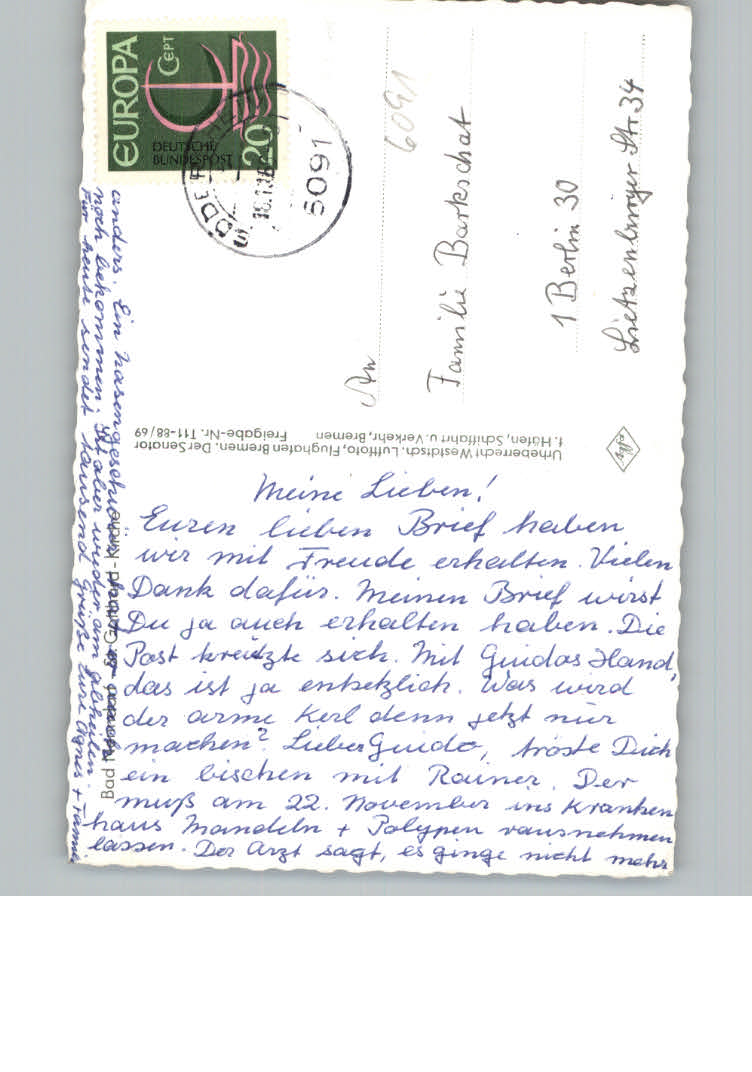 EUROPA
CEPT
DEUTSCHE
BUNDESPOST
20
6091
6091
An
Familie Barkschat
1 Berlin 30
Lietzenburger Str. 34
Urheberrecht Westdtsch. Luftfoto, Flughafen Bremen. Der Senator
f. Häfen, Schiffahrt u. Verkehr, Bremen Freigabe-Nr. T11-88/69
Meine Lieben!
Euren lieben Brief haben
wir mit Freude erhalten. Vielen
Dank dafür. Meinen Brief wirst
Du ja auch erhalten haben. Die
Post kreutzte sich. Mit Guidos Hand,
das ist ja entsetzlich. Was wird
der arme Kerl denn jetzt nur
machen? Lieber Guido, tröste Dich
ein bischen mit Rainer. Der
muß am 22. November ins Kranken
haus Mandeln + Polypen rausnehmen
lassen. Der Arzt sagt, es ginge nicht mehr
anders. Ein Nasengeschwür hat er auch
noch bekommen. Ist aber wieder am abheilen.
Für heute sendet tausend Grüße Eure Agnes + Famil
Bad - St. Gotthard - Kirche